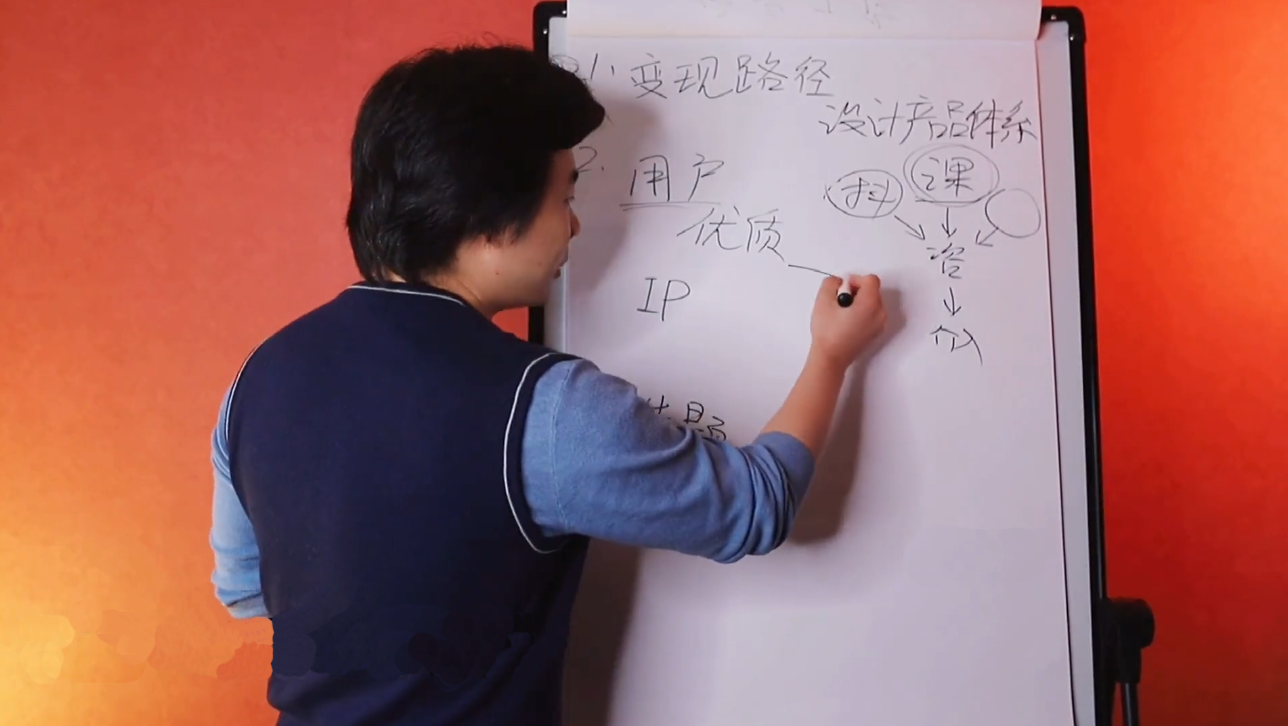 1. 变现路径
设计产品体系
2. 用户
抖 课
优质
咨
IP
题